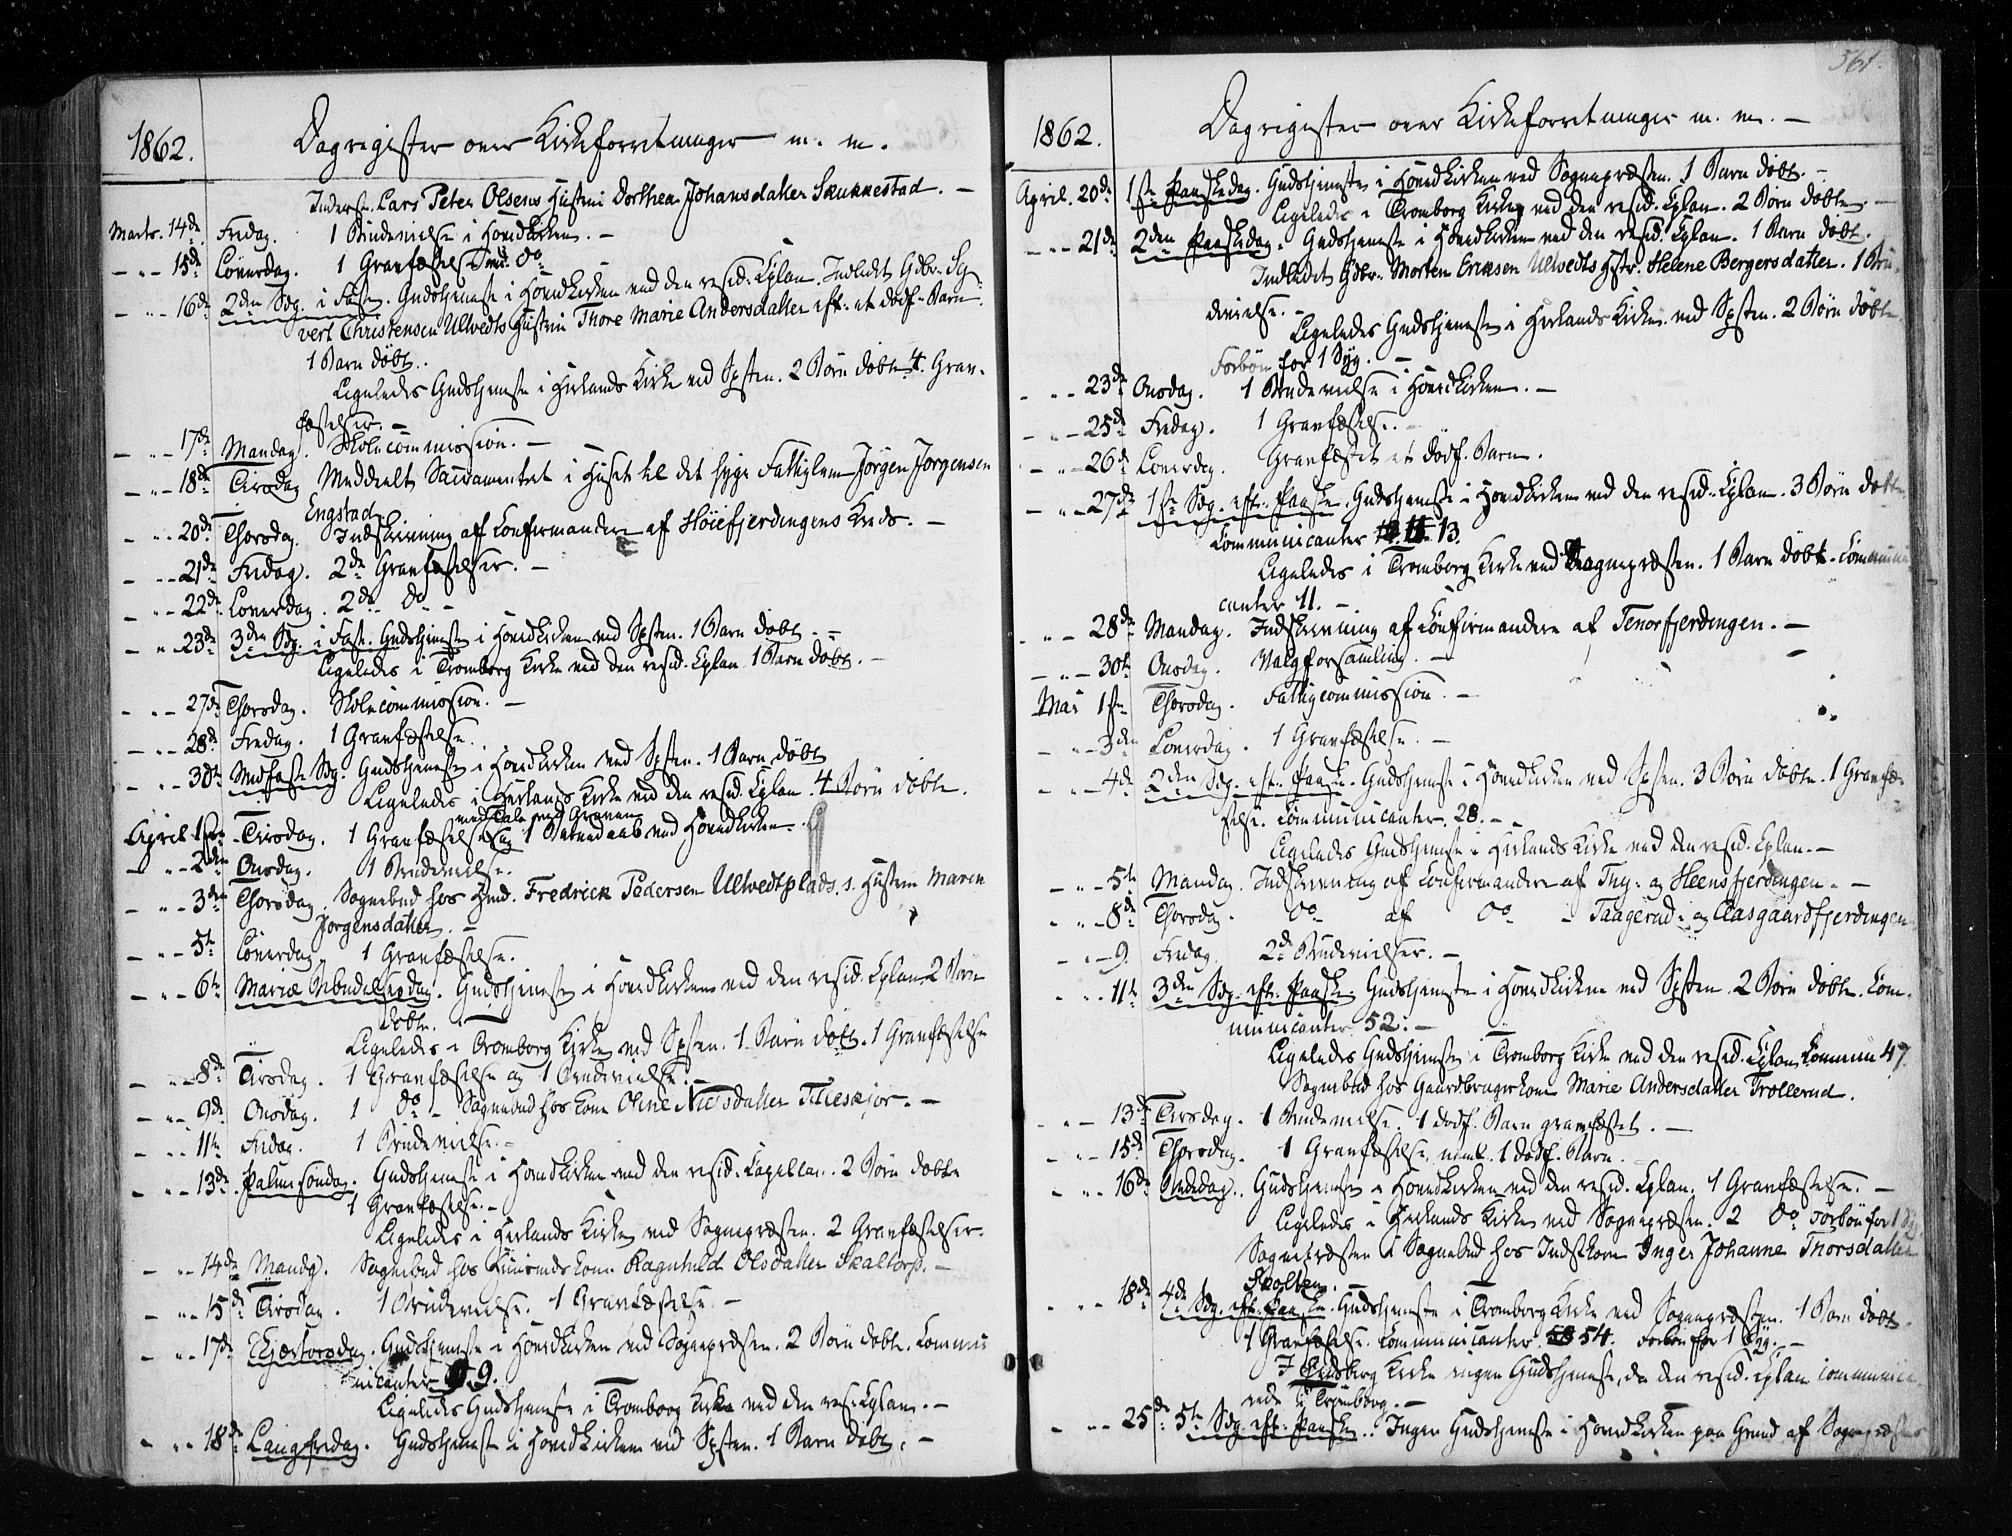 1862.
Dagregister over Kirkeforretninger m. m.
Inderst Lars Peter Olsens Hustru Dorthea Johansdatter Skukkestad. —
Marts. 14de Fredag. 1 Brudevielse i Hovedkirken. —
— " — 15de Løverdag. 1 Gravfæstelse ved do
— " — 16de 2den Sdg. i Faste. Gudstjeneste i Hovedkirken ved den resid. Cplan. Indledt Gdbr. Sy-
vert Christensen Ulvedts Hustru Thore Marie Andersdatter eft. et dødf. Barn.
1 Barn døbt.
Ligeledes Gudstjeneste i Herlands Kirke ved Spsten. 2 Børn døbte. 4 Grav-
fæstelser. —
— " — 17de Mandag. Skolecommission. —
— " — 18de Tirsdag Meddeelt Sacramentet i Huset til det syge Fattiglem Jørgen Jørgensen
Engstad.
— " — 20de Thorsdag. Indskrivning af Confirmander af Høiefjerdingens Kreds. —
— " — 21de Fredag. 2de Gravfæstelser. —
— " — 22de Løverdag. 2de do —
— " — 23de 3den Sdg. i Faste. Gudstjeneste i Hovedkirken ved Spsten. 1 Barn døbt. —
Ligeledes i Tromborg Kirke ved den resid. Cplan. 1 Barn døbt. —
— " — 27de Thorsdag. Skolecommission. —
— " — 28de Fredag. 1 Gravfæstelse.
— " — 30te Midfaste Sdg. Gudstjeneste i Hovedkirken ved Spsten. 1 Barn døbt
Ligeledes i Herlands Kirke ved den resid. Cplan. 4 Børn døbte.
med Tale ved Graven
April 1ste Tirsdag. 1 Gravfæstelse og 1 Barnedaab ved Hovedkirken.
— " — 2den Onsdag. 1 Brudevielse.
— " — 3die Thorsdag. Sognebud hos Hmd. Fredrick Pedersen Ulvedtplads. s. Hustru Maren
Jørgensdatter. —
— " — 5te Løverdag. 1 Gravfæstelse.
— " — 6te Mariæ Bebudelsesdag. Gudstjeneste i Hovedkirken ved den resid. Cplan. 2 Børn
døbte.
Ligeledes i Tromborg Kirke ved Spsten. 1 Barn døbt. 1 Gravfæstelse
— " — 8de Tirsdag. 1 Gravfæstelse og 1 Brudevielse. —
— " — 9de Onsdag. 1 do — Sognebud hos Kone Oline Nilsdatter —
— " — 11te Fredag. 1 Brudevielse. —
— " — 13de Palmesøndag. Gudstjeneste i Hovedkirken ved den resid. Capellan. 2 Børn døbte
1 Gravfæstelse. —
Ligeledes i Herlands Kirke ved Sognepræsten. 2 Gravfæstelser.
— " — 14de Mandg. Sognebud hos Huusmdskone Ragnhild Olsdatter Skaltorp. —
— " — 15de Tirsdag. 1 Brudevielse. 1 Gravfæstelse. —
— " — 17de Skjærtorsdag. Gudstjeneste i Hovedkirken ved Sognepræsten. 2 Børn døbte. Commu-
nicanter 9.
Ligeledes Gudstjeneste i Tromborg Kirke ved den resid. Cplan. —
— " — 18de Langfredag. Gudstjeneste i Hovedkirken ved Spsten. 1 Barn døbt. —
361.
1862.
Dagregister over Kirkeforretninger m. m. —
April. 20de 1ste Paaskedag. Gudstjeneste i Hovedkirken ved Sognepræsten. 1 Barn døbt. —
Ligeledes i Tromborg Kirke ved den resid. Cplan. 2 Børn døbte. —
— " — 21de 2den Paaskedag. Gudstjeneste i Hovedkirken ved den resid. Cplan. 1 Barn døbt.
Indledet Gdbr. Morten Eriksen Ulvedts Hstr. Helene Bergersdatter. 1 Bru-
devielse. —
Ligeledes Gudstjeneste i Herlands Kirke ved Spsten. 2 Børn døbte.
Forbøn for 1 Syg. —
— " — 23de Onsdag. 1 Brudevielse i Hovedkirken. —
— " — 25de Fredag. 1 Gravfæstelse. —
— " — 26de Løverdag. Gravfæstet et dødf. Barn.
— " — 27de 1ste Sdg. eft. Paaske. Gudstjeneste i Hovedkirken ved den resid. Cplan. 3 Børn døbte
Communicanter 13.
Ligeledes i Tromborg Kirke ved Sognepræsten. 1 Barn døbt. Communi-
canter 11. —
— " — 28de Mandag. Indskrivning af Confirmander af Tenorfjerdingen. —
— " — 30te Onsdag. Valgforsamling. —
Mai 1ste Thorsdag. Fattigcommission. —
— " — 3die Løverdag. 1 Gravfæstelse. —
— " — 4de 2den Sdg. eft. Paaske. Gudstjeneste i Hovedkirken ved Spsten. 3 Børn døbte. 1 Gravfæ-
stelse. Communicanter 28. —
Ligeledes Gudstjeneste i Herlands Kirke ved den resid. Cplan. —
— " — 5te Mandag. Indskrivning af Confirmander af Thy- og Heensfjerdingen. —
— " — 8de Thorsdag. do af do — Taagerud- og Aasgaardfjerdingen
— " — 9. Fredag. 2de Brudevielser. —
— " — 11te 3die Sdg. eft. Paaske. Gudstjeneste i Hovedkirken ved Spsten. 2 Børn døbte. Com-
municanter 52. —
Ligeledes Gudstjeneste i Tromborg Kirke ved den resid. Cplan. Commun 47.
Sognebud hos Gaardbrugerkone Marie Andersdatter Trollerud.
— " — 13de Tirsdag. 1 Brudevielse. 1 dødf. Barn gravfæstet. —
— " — 15de Thorsdag. 1 Gravfæstelse, neml. 1 dødf. Barn. —
— " — 16de Bededag. Gudstjeneste i Hovedkirken ved den resid. Cplan. 1 Gravfæstelse. —
Ligeledes i Herlands Kirke ved Sognepræsten. 2 do Forbøn for 1 Syg.
Sognepræsten i Sognebud hos Indstkone Inger Johanne Thorsdatter
Skolten.
— " — 18de 4de Sdg. eft. Paaske. Gudstjeneste i Tromborg Kirke ved Sognepræsten. 1 Barn døbt.
1 Gravfæstelse. Communicanter 54. Forbøn for 1 Syg. —
I Eidsberg Kirke ingen Gudstjeneste, da den resid. Cplan communice-
rede i Tromborg. —
— " — 25de 5te Sdg. eft. Paaske. Ingen Gudstjeneste i Hovedkirken paa Grund af Sognepræstens